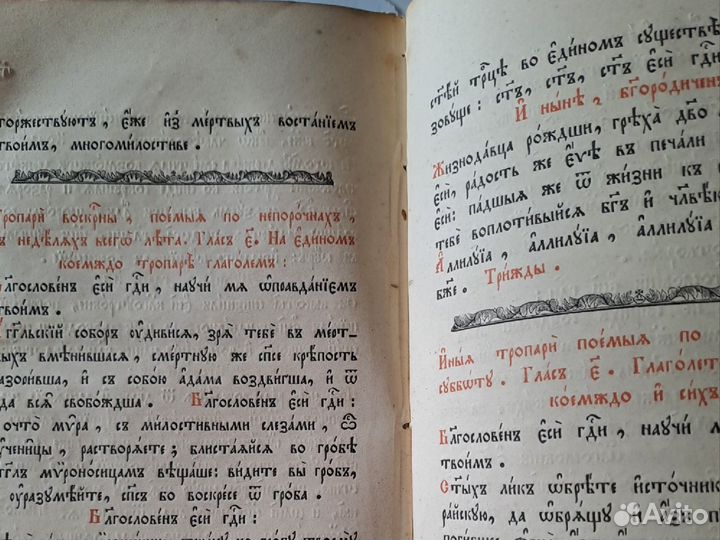 торжествуютъ, є҆́же и҆з̾ ме́ртвыхъ востанїемъ
твои́мъ, многомилостиве.
Тропарѝ воскр҃ны, поемыѧ по непорочнахъ,
въ недѣлѧхъ всегѡ̀ лѣта. Гласъ є҃. На є҆ди́номъ
коемждо тропарѣ̀ глаголемъ:
Бл҃гословенъ є҆сѝ гд҇и, научи мѧ ѡ҆правданїемъ
твои́мъ.
А҆́гг҃льскїй соборъ оу҆диви́сѧ, зрѧ̀ тебѐ въ мерт-
выхъ вмѣни́вшасѧ, сме́ртную же сп҃се крѣ́пость
разори́вша, и҆ съ собо́ю а҆да́ма воздви́гша, и҆ ѿ
а҆да всѧ̀ свобождша. Бл҃гословенъ є҆сѝ гд҇и:
почто̀ мѵ́ра, съ ми́лостивными слеза́ми, ѽ
оу҆ченицы, растворѧ́ете; блиста́ѧйсѧ во гро́бѣ
а҆́гг҃лъ мѵроно́сицамъ вѣща́ше: ви́дите вы̀ гробъ,
и҆ оу҆разумѣ́йте, сп҃съ бо воскресе ѿ гро́ба.
Бл҃гословенъ є҆сѝ гд҇и:
ст҃ѣй трⷪ҇цѣ во є҆ди́номъ существѣ̀
зовуще: ст҃ъ, ст҃ъ, ст҃ъ є҆сѝ гд҇и
И҆ ны́нѣ, бг҃оро́диченъ
Жизнода́вца ро́ждши, грѣха̀ дв҃о
є҆сѝ, ра́дость же є҆́ѵѣ въ печали
є҆сѝ: па́дшыѧ же ѿ жи́зни къ
тебѐ воплоти́выйсѧ бг҃ъ и҆ чл҃вѣ́къ
А҆ллилу́їа, а҆ллилу́їа, а҆ллилу́їа
бж҃е. Три́жды.
И҆ны́ѧ тропарѝ поемыѧ по
суббѡту. Гласъ є҃. Глаголетъ
коемждо и҆ си́хъ
Бл҃гословенъ є҆сѝ гд҇и, научи
твои́мъ.
Ст҃ы́хъ ликъ ѡ҆брѣ́те и҆сто́чникъ
ра́йскую, да ѡ҆брѧ́щу и҆
Avito